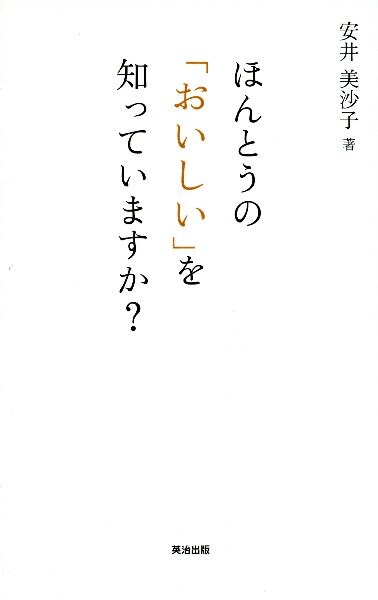 安井 美沙子 著
ほんとうの
「おいしい」を
知っていますか?
英治出版